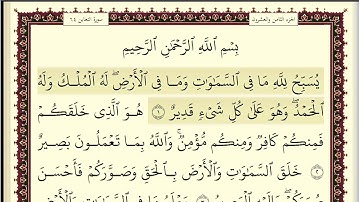 الجزء الثامن والعشرون
سورة التغابن ٦٤
بِسْمِ اللَّهِ الرَّحْمَٰنِ الرَّحِيمِ
يُسَبِّحُ لِلَّهِ مَا فِي السَّمَاوَاتِ وَمَا فِي الْأَرْضِ ۖ لَهُ الْمُلْكُ وَلَهُ
الْحَمْدُ ۖ وَهُوَ عَلَىٰ كُلِّ شَيْءٍ قَدِيرٌ ١ هُوَ الَّذِي خَلَقَكُمْ
فَمِنْكُمْ كَافِرٌ وَمِنْكُمْ مُؤْمِنٌ ۚ وَاللَّهُ بِمَا تَعْمَلُونَ بَصِيرٌ
٢ خَلَقَ السَّمَاوَاتِ وَالْأَرْضَ بِالْحَقِّ وَصَوَّرَكُمْ فَأَحْسَنَ